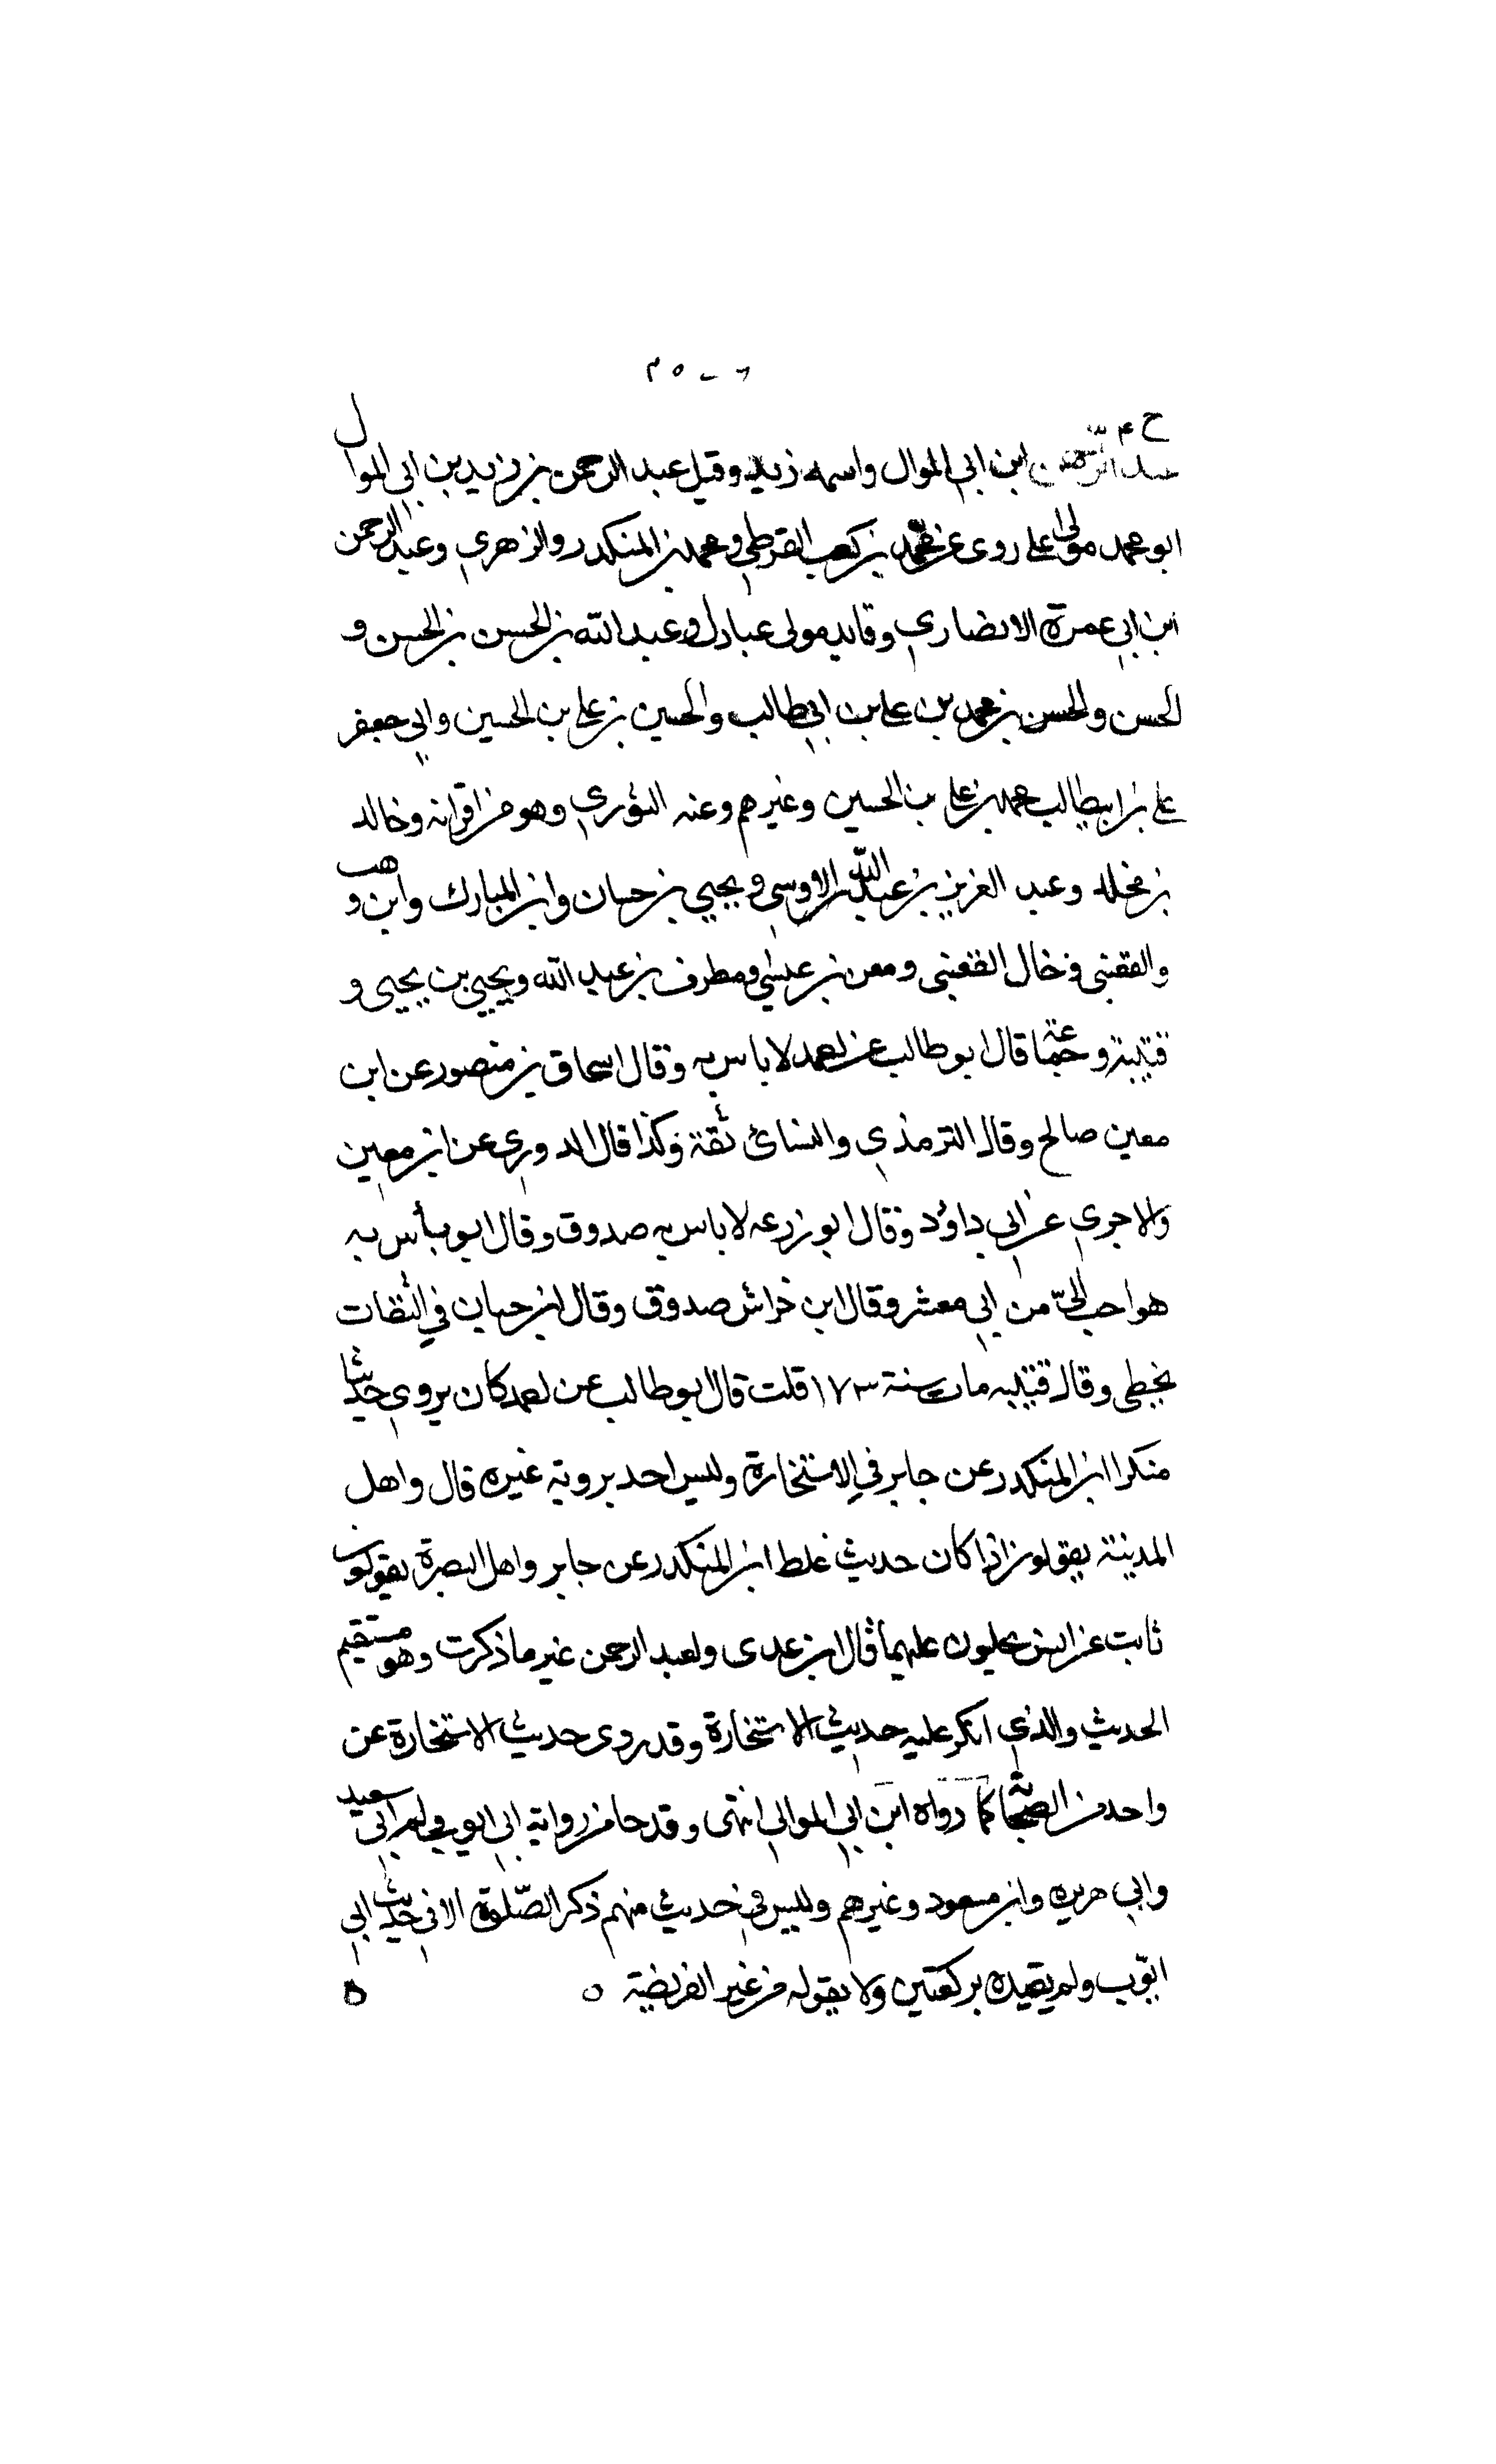 خ ٤
عبد الرحمن ابن ابي الموال واسمه زيد وقيل عبد الرحمن بن زيد بن ابي الموال
ابو محمد مولى علي روى عن محمد بن كعب القرظي ومحمد بن المنكدر والزهري وعبد الرحمن
ابن ابي عمرة الانصاري وفايد مولى عبادل وعبد الله بن الحسن بن الحسن و
الحسن والحسن بن محمد بن علي بن ابي طالب والحسين بن علي بن الحسين وابي جعفر
علي بن ابيطالب محمد بن علي بن الحسين وغيرهم وعنه الثوري وهو من اقرانه وخالد
بن مخلد وعبد العزيز بن عبد الله الاوسي ويحيي بن حسان وابن المبارك وابن وهب
والقعنبي وخال القعنبي ومعن بن عيسى ومطرف بن عبد الله ويحيي بن يحيى و
قتيبة وجماعة قال ابو طالب عن احمد لا باس به وقال اسحاق بن منصور عن ابن
معين صالح وقال الترمذي والنسائ ثقة وكذا قال الدوري عن ابن معين
والاجري عن ابي داؤد وقال ابو زرعه لا باس به صدوق وقال ابو باس به
هو احب الي من ابي معشر وقال ابن خراش صدوق وقال ابن حبان في الثقات
يخطي وقال قتيبه مات سنة ١٧٣ قلت قال ابو طالب عن احمد كان يروي حديثا
منكرا ابن المنكدر عن جابر في الاستخارة وليس احد يرويه غيره قال واهل
المدينة يقولون اذا كان حديث غلط ابن المنكدر عن جابر واهل البصرة يقولون
ثابت عن انس يحليون عليهما قال ابن عدى ولعبد الرحمن غير ما ذكرت وهو مستقيم
الحديث والذي انكر عليه حديث الاستخارة وقد روى حديث الاستخارة عن
واحد من الصحابة كما رواه ابن ابي الموالي انتهى وقد جا من رواية ابي ايوب وابي سعيد
وابي هريره وابن مسعود وغيرهم وليس في حديث منهم ذكر الصلوة الا في حديث ابي
ايوب ولم يقيده بركعتين ولا بقوله من غير الفريضة